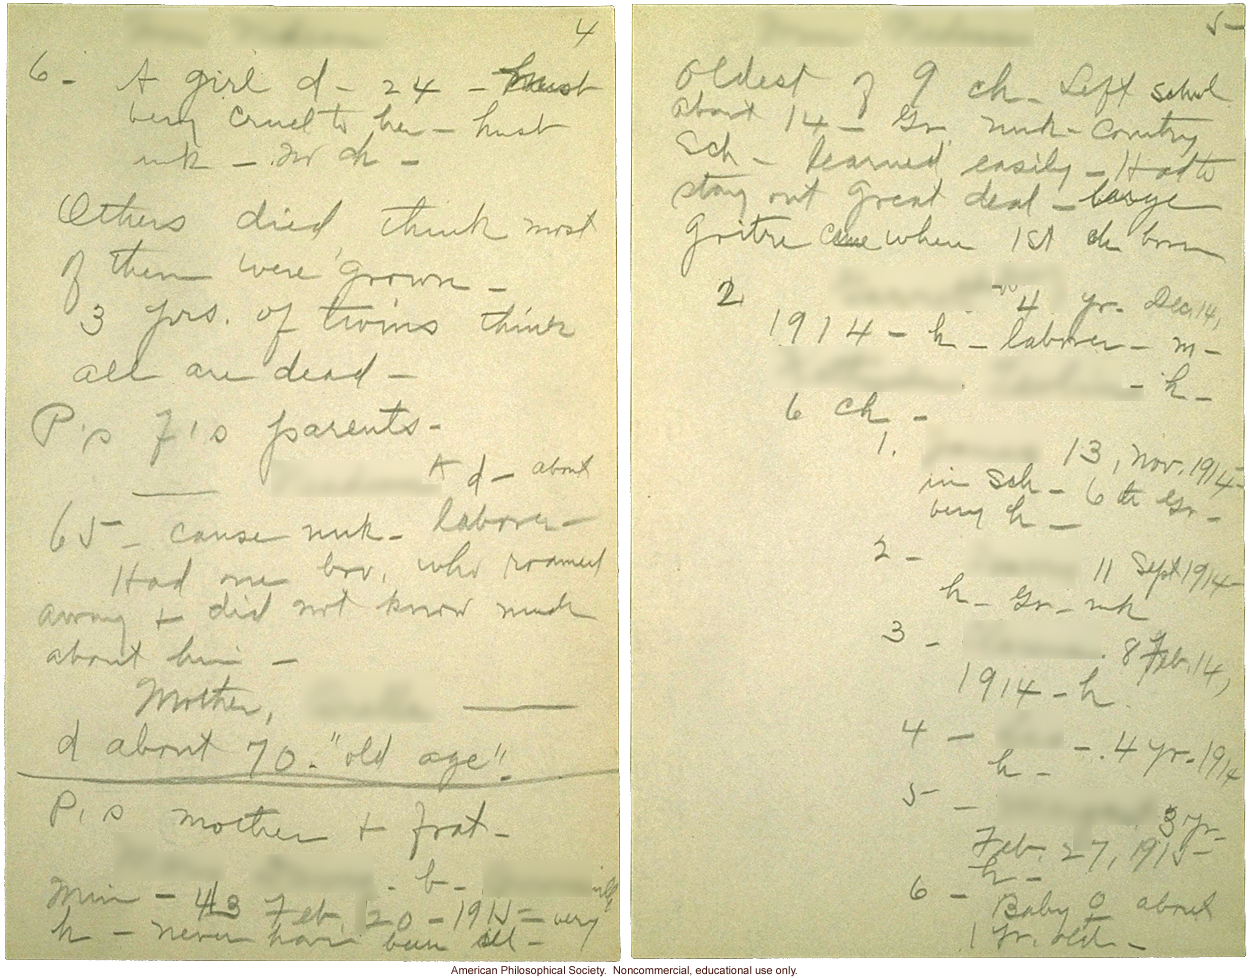 4
6- A girl d- 24 - Hust
very cruel to her - hust
unk - no ch -
Others died, think most
of them were grown -
3 prs. of twins think
all are dead -
P's F's parents -
d - about
65 - cause unk - laborer -
Had one bro, who roamed
away + did not know much
about him -
Mother,
d about 70 - "old age".
P's mother + frat -
- b -
Minn - 43 Feb. 20 - 1915 - very
h - never have been ill -
5-
Oldest of 9 ch - Left school
about 14 - Gr. unk - Country
Sch - learned easily - Had to
stay out great deal - large
goitre came when 1st ch born
2 4 yr. Dec, 14,
1914 - h - laborer - m -
- h -
6 ch -
1. 13, Nov. 1914 -
in Sch - 6th Gr -
very h -
2 - 11 Sept 1914 -
h - Gr - unk
3 - . 8 Feb. 14,
1914 - h.
4 - - . 4 yr - 1914
h -
5 - 3 yr -
Feb. 27, 1915 -
h -
6 - Baby ♀ about
1 yr. old -
American Philosophical Society. Noncommercial, educational use only.